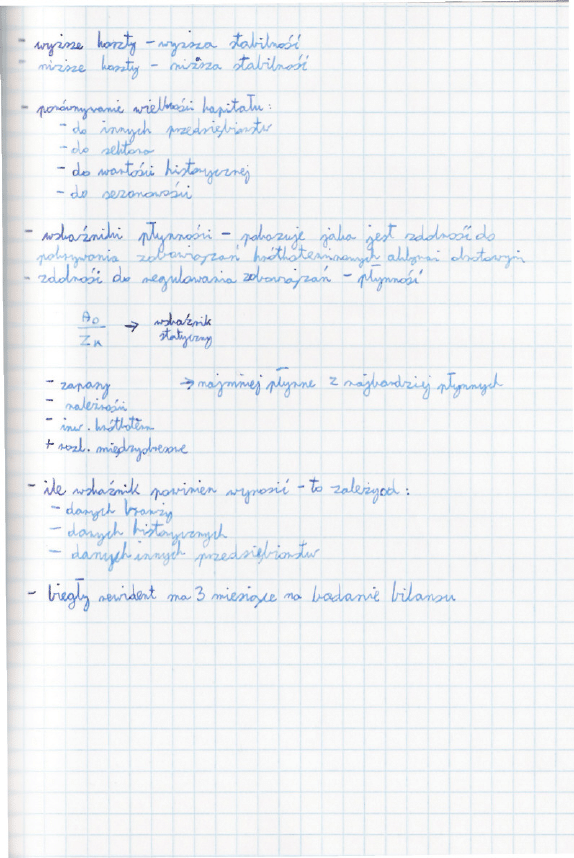 - wyższe koszty - wyższa stabilność
- niższe koszty - niższa stabilność
- porównywanie wielkości kapitału:
- do innych przedsiębiorstw
- do sektora
- do wartości historycznej
- do sezonowości
- wskaźniki płynności - pokazuje jaka jest zdolność do
pokrywania zobowiązań krótkoterminowych aktywami obrotowymi
- zdolność do regulowania zobowiązań - płynność
AO → wskaźnik
ZK statyczny
- zapasy → najmniej płynne z najbardziej płynnych
- należności
- inw. krótkoterm
+ rozl. międzyokresowe
- ile wskaźnik powinien wynosić - to zależy od:
- danych branży
- danych historycznych
- danych innych przedsiębiorstw
- biegły rewident ma 3 miesiące na badanie bilansu